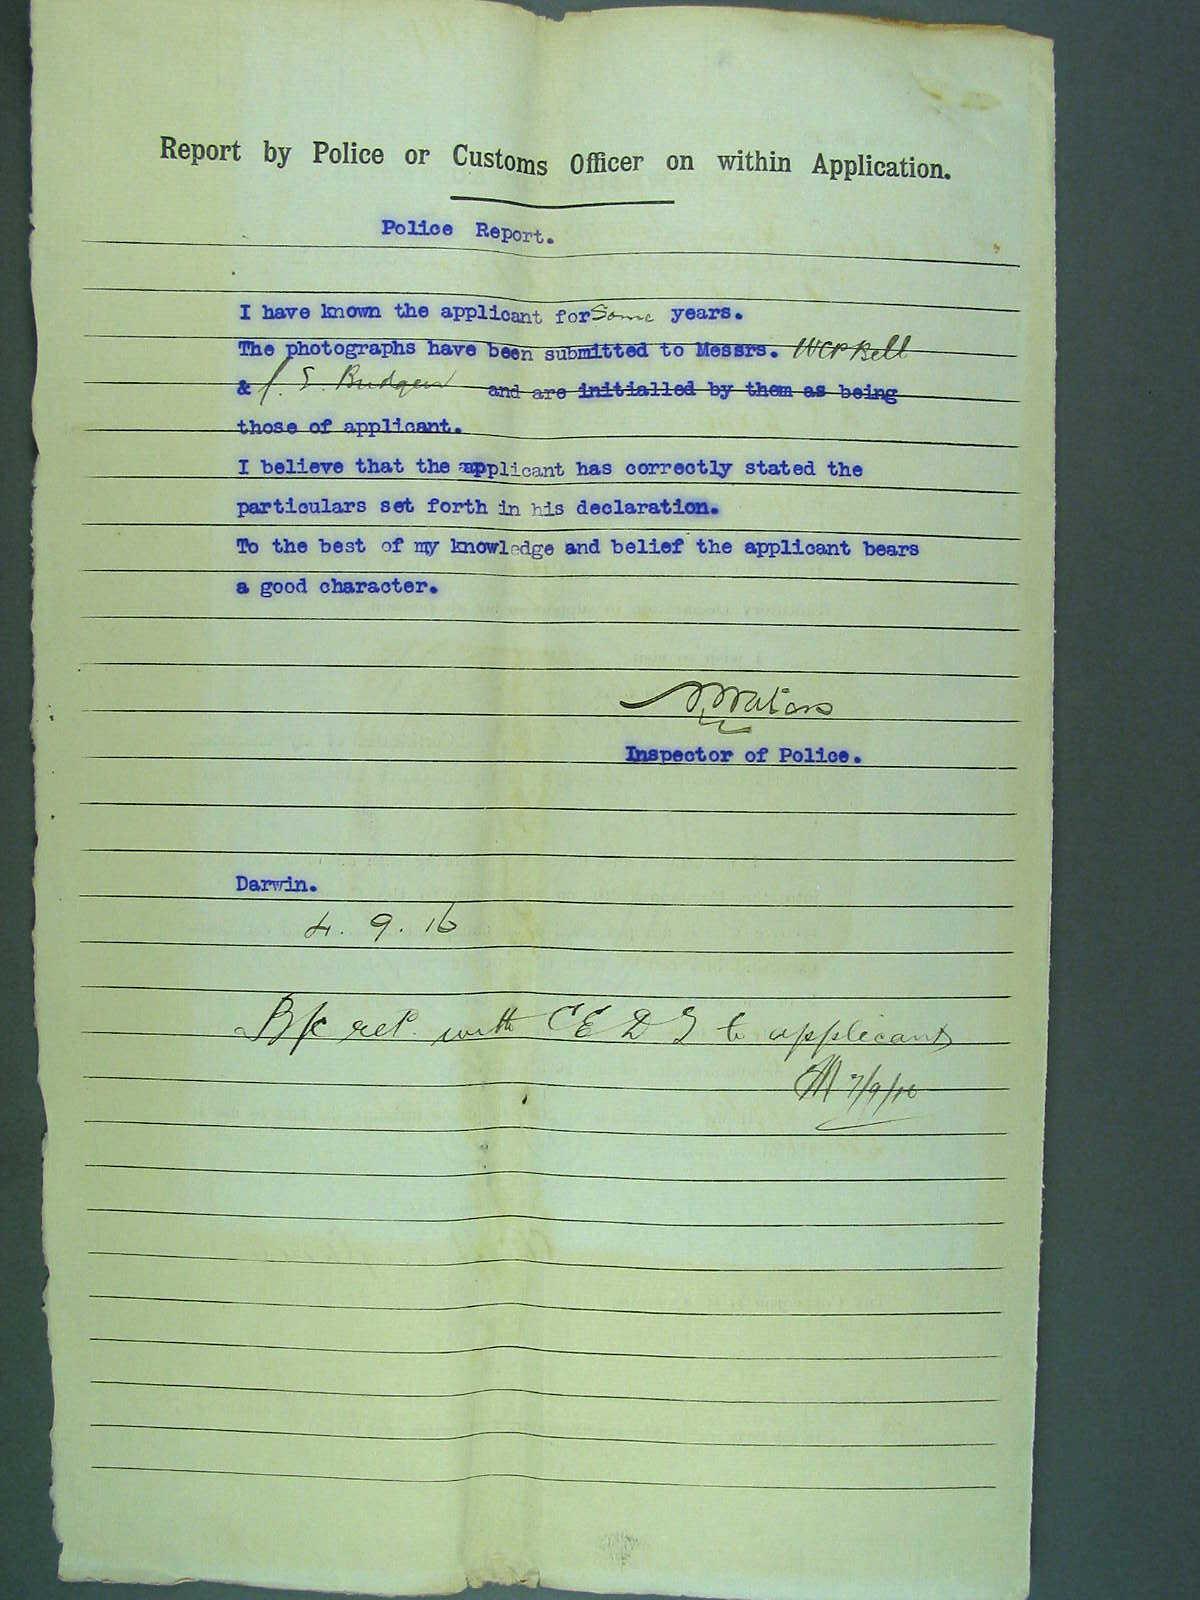 Report by Police or Customs Officer on within Application.
Police Report.
I have known the applicant for Some years.
The photographs have been submitted to Messrs. WCP Bell
& J. S. Budgen and are initialled by them as being
those of applicant.
I believe that the applicant has correctly stated the
particulars set forth in his declaration.
To the best of my knowledge and belief the applicant bears
a good character.
N Waters
Inspector of Police.
Darwin.
4. 9. 16
Bk ret. with CEDT to applicant
7/9/16